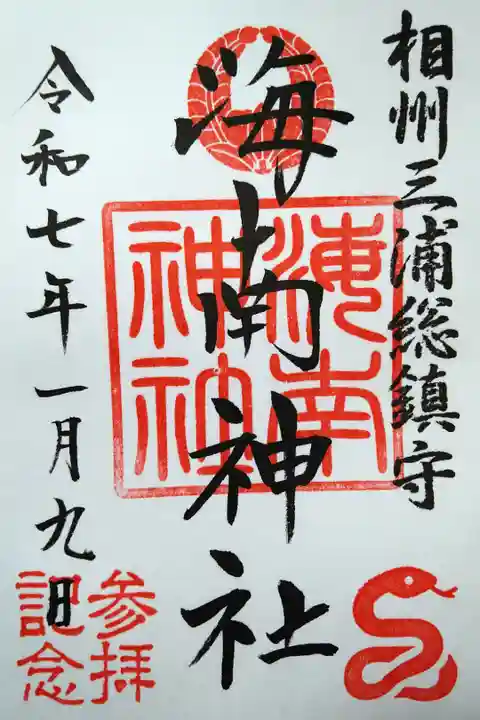 相州三浦総鎮守
海南神社
海南
神社
令和七年一月九日
参拝
記念